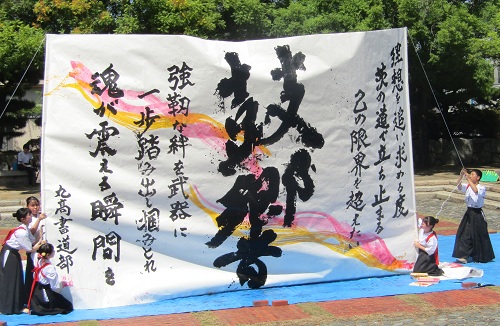 理想を追い求める度
茨の道で立ち止まる
己の限界を超えたい
鼓響
強靭な絆を武器に
一歩踏み出し掴みとれ
魂が震える瞬間を
丸高書道部